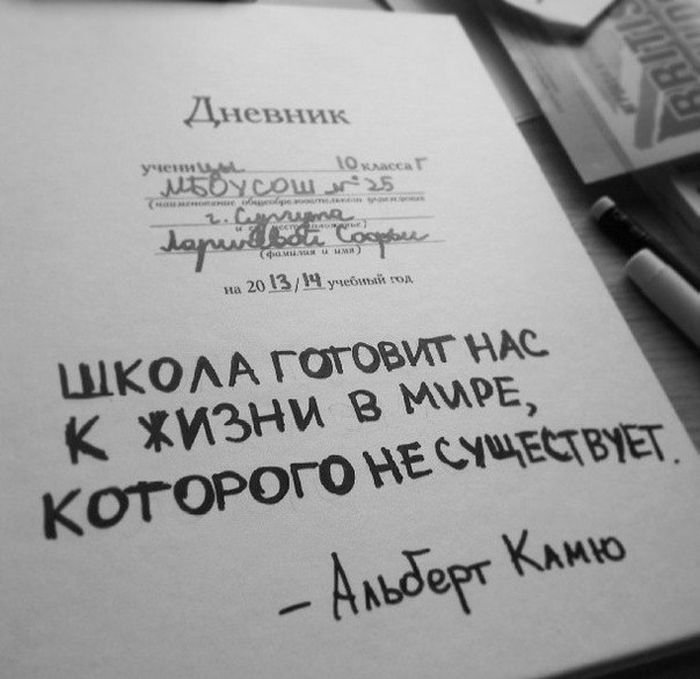 BRITIS
Дневник
ученицы 10 класса Г
МБОУСОШ №25
(наименование общеобразовательного учреждения
г. Сургута
Софьи
(фамилия и имя)
на 2013/14 учебный год
ШКОЛА ГОТОВИТ НАС
К ЖИЗНИ В МИРЕ,
КОТОРОГО НЕ СУЩЕСТВУЕТ.
– Альберт Камю